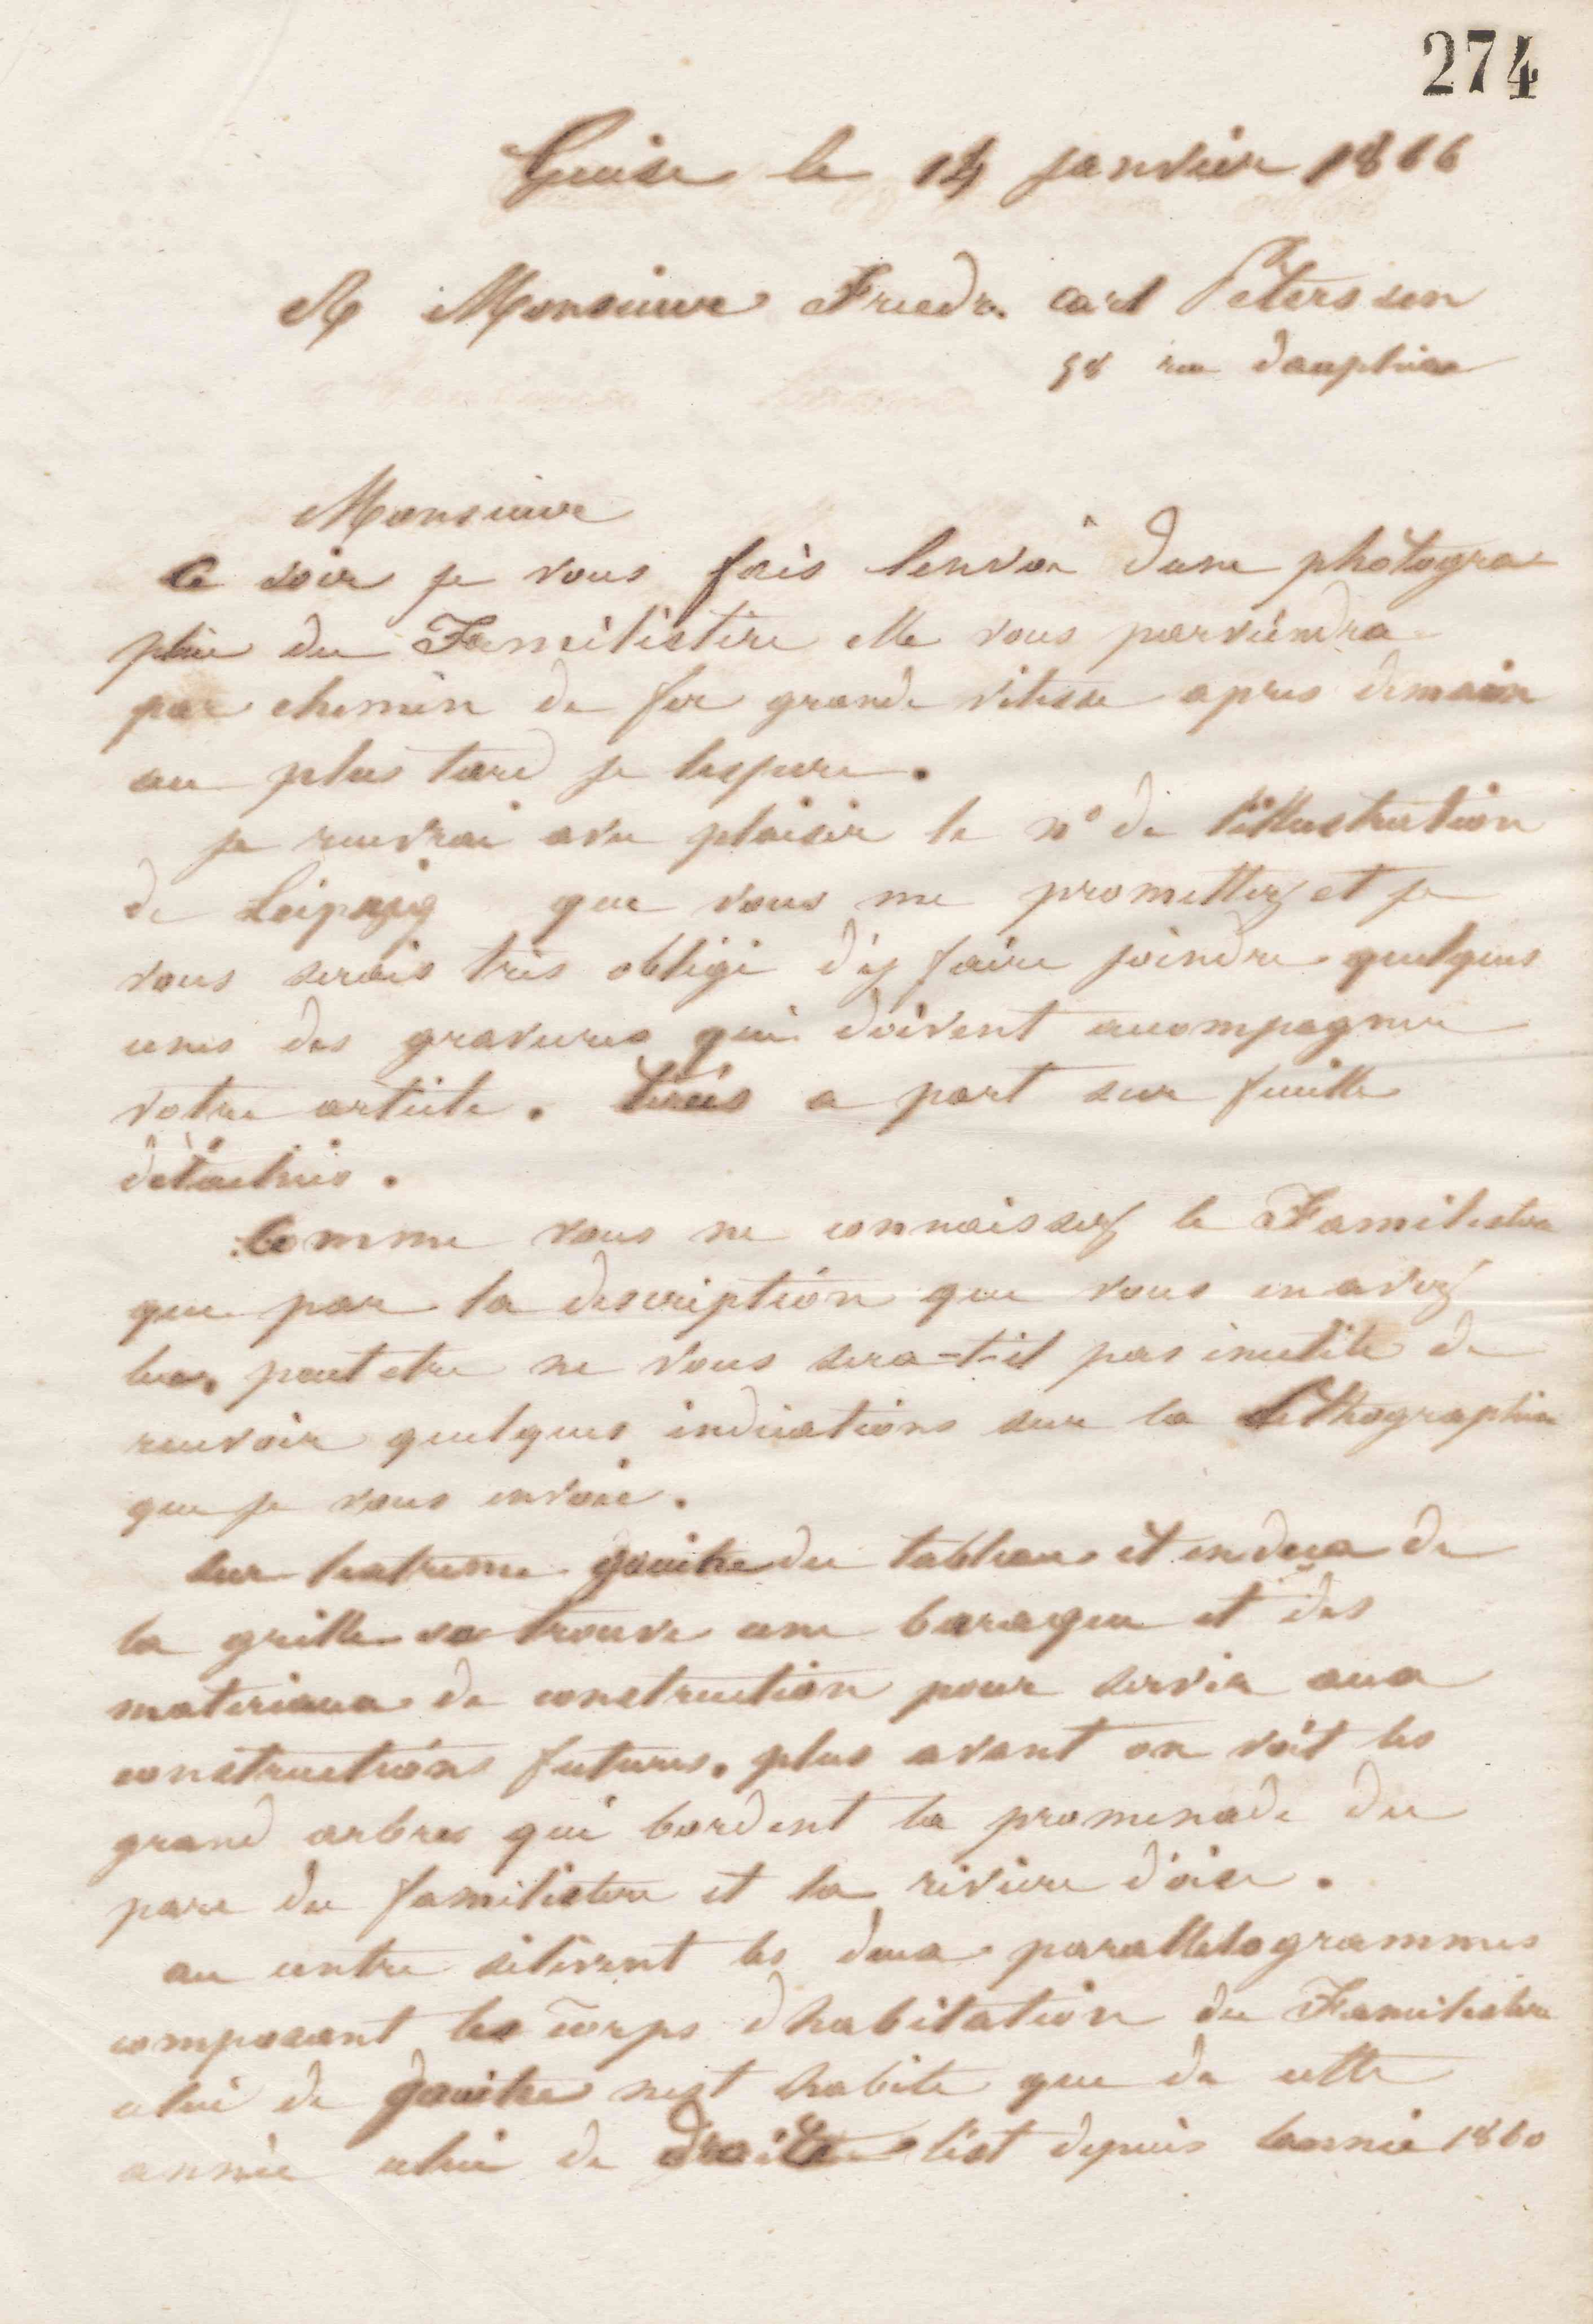 274
Guise le 14 janvier 1866
A Monsieur Friedr. Carl Peterssen
58 rue dauphine
Monsieur
Ce soir je vous fais lenvoi dune photogra
phie du Familistère elle vous parviendra
par chemin de fer grande vitesse apres demain
au plus tard je lespere.
je recevrai avec plaisir le n° de l'illustration
de Leipzig que vous me promettez et je
vous serais très obligé d'y faire joindre quelques
unes des gravures qui doivent accompagner
votre article. tirés a part sur feuille
détachés.
Comme vous ne connaissez le Familistere
que par la description que vous en avez
lue, peut etre ne vous sera-t-il pas inutile de
recevoir quelques indications sur la lithographie
que je vous envoie.
Sur lextreme gauche du tableau et en deça de
la grille se trouve une baraque et des
materiaux de construction pour servir aux
constructions futures. plus avant on voit les
grand arbres qui bordent la promenade du
parc du familistere et la riviere d'oise.
au centre sélèvent les deux parallelogrammes
composant les corps dhabitation du Familistere
celui de gauche nest habite que de cette
année celui de droite lest depuis lannée 1860